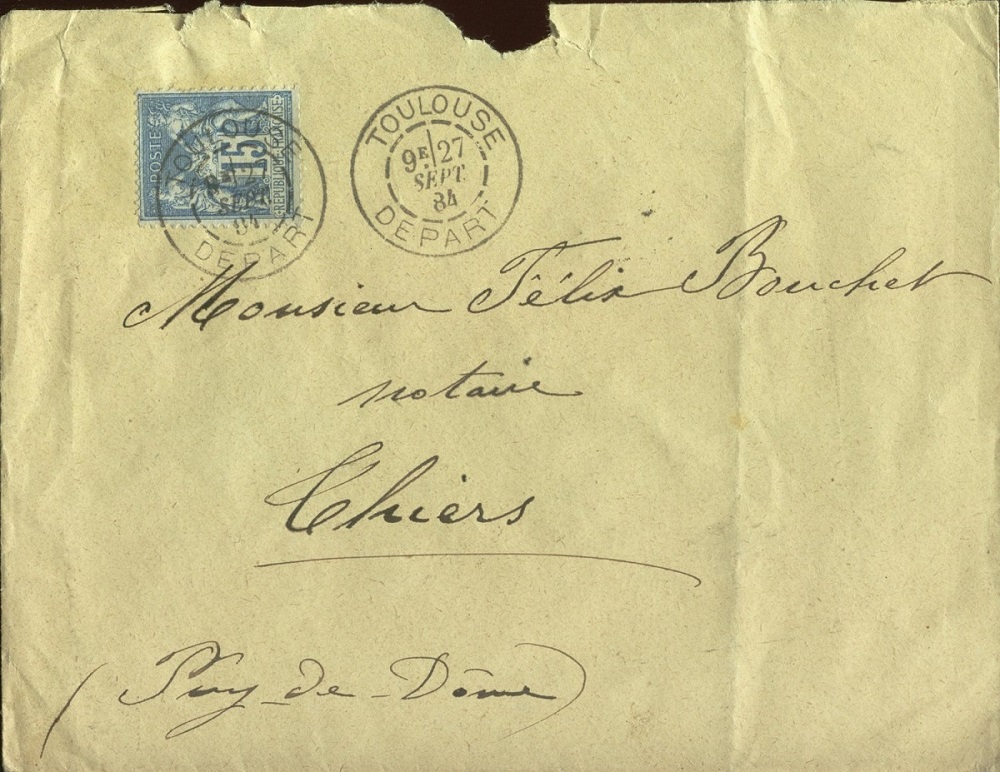 POSTE
15
REPUBLIQUE FRANÇAISE
TOULOUSE
SEPT.
84
DEPART
TOULOUSE
9E 27
SEPT.
84
DEPART
Monsieur Félix Bouchet
notaire
Thiers
(Puy-de-Dôme)